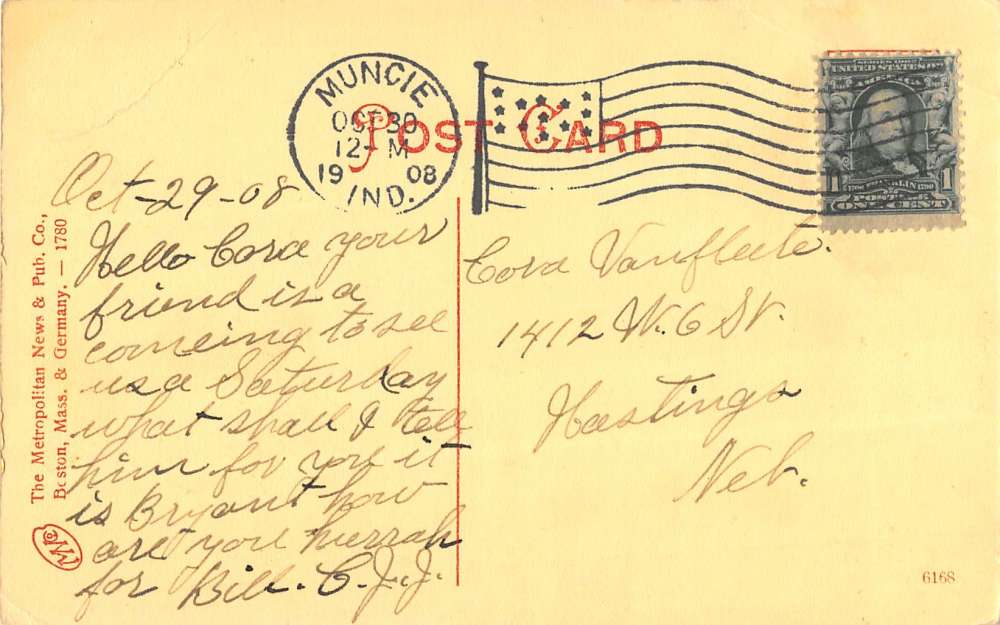 POST CARD
MUNCIE
OCT 30
12 - M
19 08
IND.
SERIES 1902
UNITED STATES OF
AMERICA
1 1790 FRANKLIN 1790 1
POSTAGE
ONE CENT
The Metropolitan News & Pub. Co.,
Boston, Mass. & Germany. — 1780
Oct-29-08
Hello Cora your
friend is a
comeing to see
us a Saturday
what shall I tell
him for you it
is Bryant how
are you hurrah
for Bill. C.J.J.
Cora Vanfleete.
1412 W. 6 St.
Hastings
Neb.
6168